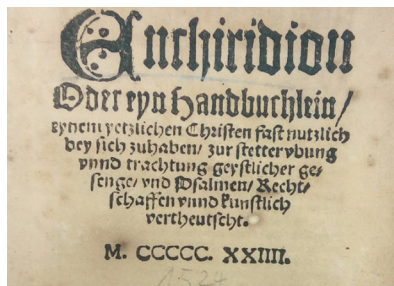 Enchiridion
Oder eyn Handbuchlein/
eynem yetzlichen Christen fast nutzlich
bey sich zuhaben/ zur stetter vbung
vnnd trachtung geystlicher ge-
senge/ vnd Psalmen/ Recht-
schaffen vnnd kunstlich
vertheutscht.
M. CCCCC. XXIIII.
1524